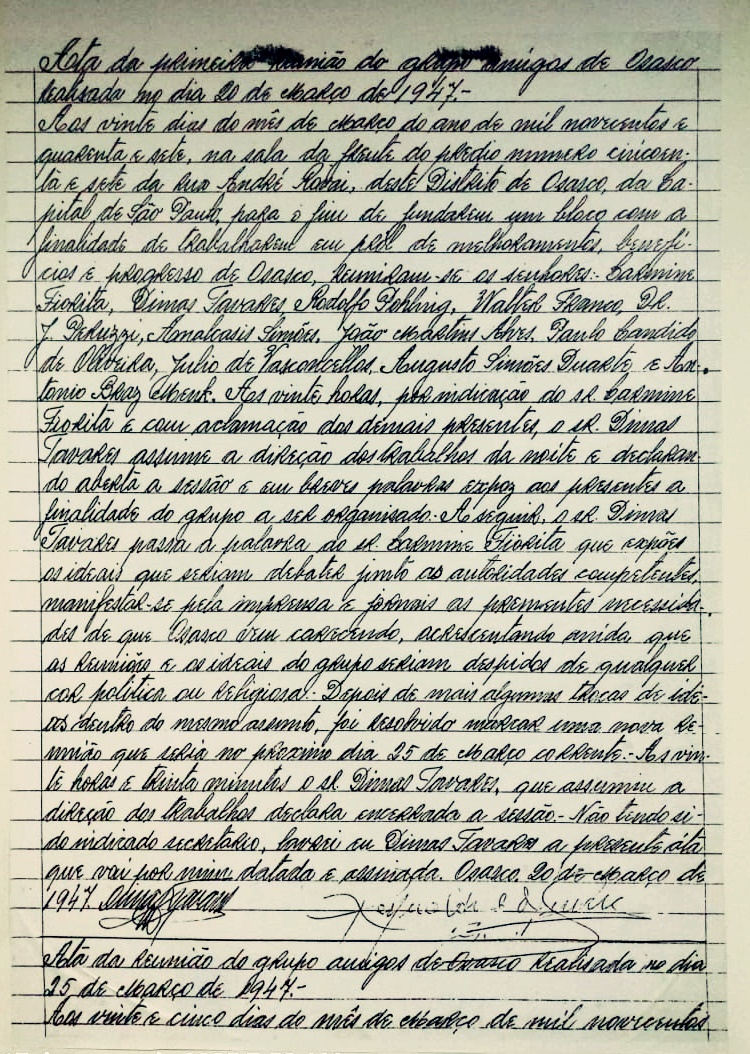 Ata da primeira reunião do grupo amigos de Osasco
realisada no dia 20 de Março de 1947.-
Aos vinte dias do mês de Março do ano de mil novecentos e
quarenta e sete, na sala da frente do predio numero cincoen-
ta e sete da rua André Rovai, deste Distrito de Osasco, da Ca-
pital de São Paulo, para o fim de fundarem um bloco com a
finalidade de trabalharem em pról de melhoramentos, benefi-
cios e progresso de Osasco, reuniram-se os senhores:- Carmine
Fiorita, Dimas Tavares Rodolfo Pohling, Walter Franco, DR.
J. Peruzzi, Amalcasis Simões, João Martins Alves, Paulo Candido
de Oliveira, Julio de Vasconcellos, Augusto Simões Duarte e An-
tonio Braz Menk. Aos vinte horas, por indicação do sr. Carmine
Fiorita e com aclamação dos demais presentes, o sr. Dimas
Tavares assume a direção dos trabalhos da noite e declaran-
do aberta a sessão e em breves palavras expoz aos presentes a
finalidade do grupo a ser organisado. A seguir, o sr. Dimas
Tavares passa a palavra do sr. Carmine Fiorita que expões
os ideais que seriam debater junto as autoridades competentes,
manifestar-se pela imprensa e jornais as prementes necessida-
des de que Osasco vem carecendo, acrescentando ainda que
as reuniões e os ideais do grupo seriam despidos de qualquer
cor politica ou religiosa.- Depois de mais algumas trocas de idé-
as dentro do mesmo assunto, foi resolvido marcar uma nova re-
união que seria no proximo dia 25 de Março corrente.- As vin-
te horas e trinta minutos o sr. Dimas Tavares, que assumiu a
direção dos trabalhos declara encerrada a sessão.- Não tendo si-
do indicado secretario, lavrei eu Dimas Tavares a presente áta
que vai por mim datada e assinada. Osasco, 20 de Março de
1947.
Ata da reunião do grupo amigos de Osasco realisada no dia
25 de Março de 1947.-
Aos vinte e cinco dias do mês de Março de mil novecentos